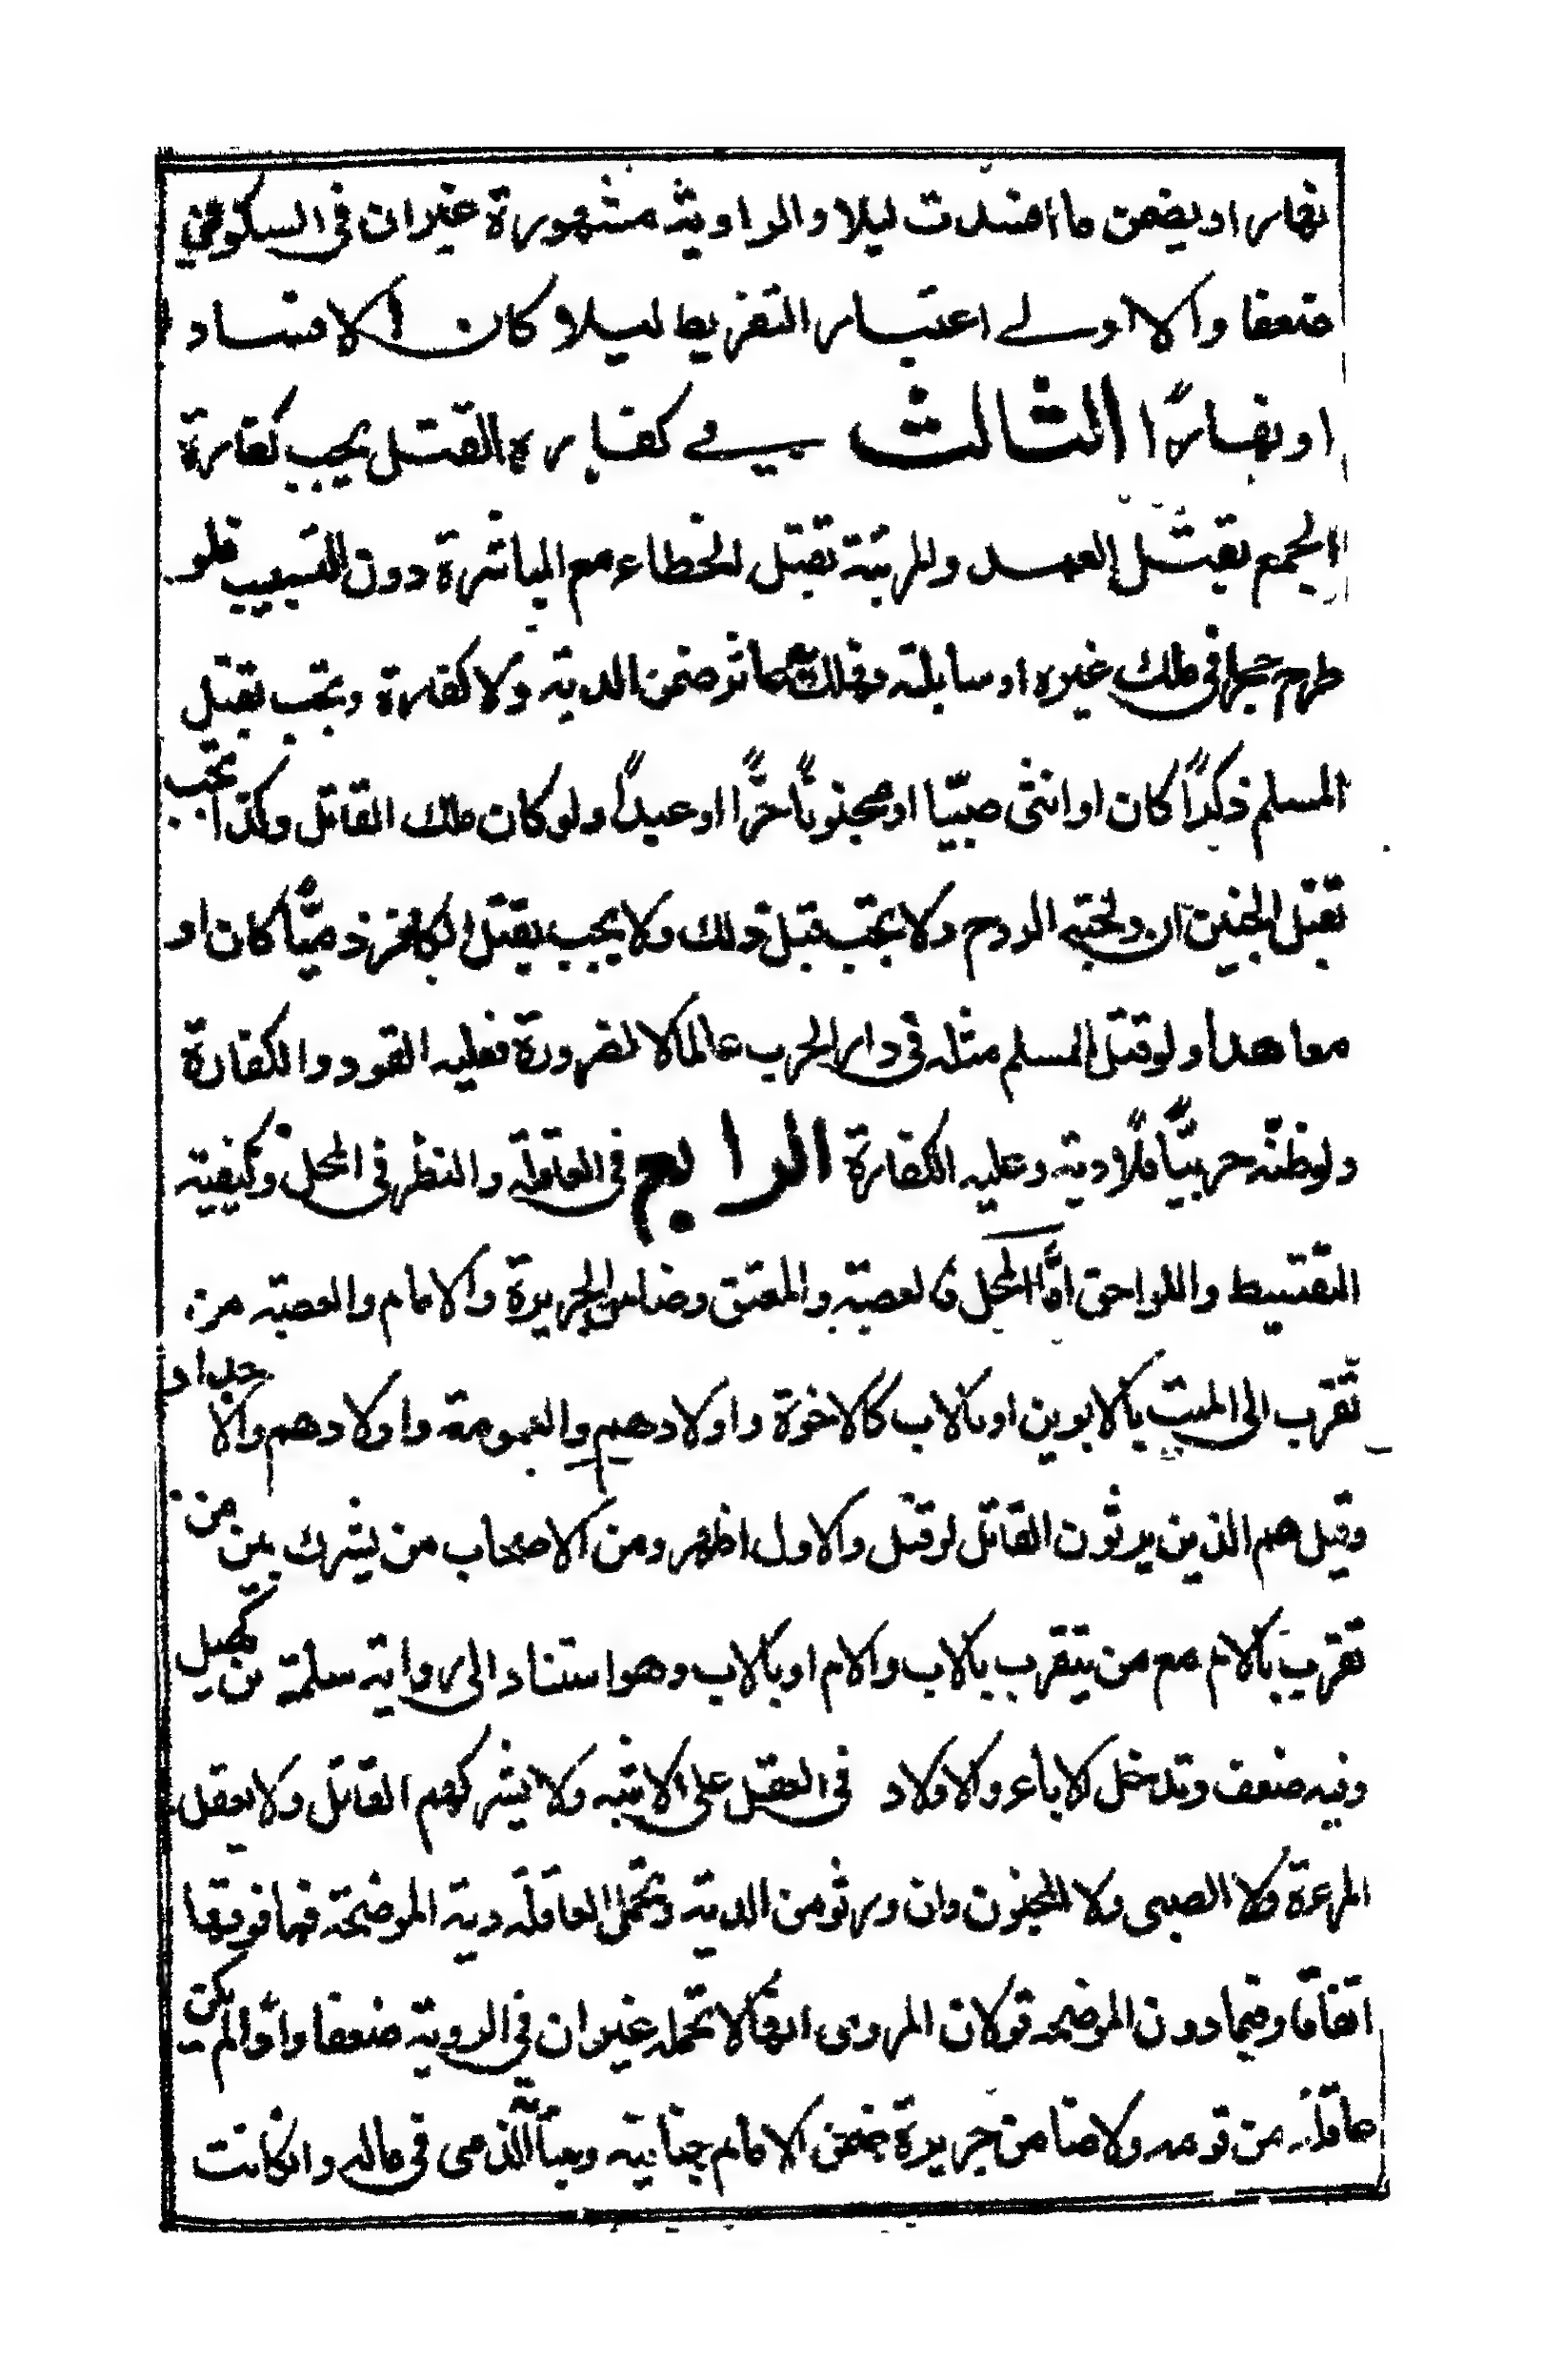 نهارا ويضمن ما افسدت ليلا والرواية مشهورة غير ان في السكوني
ضعفا والاولى اعتبار التفريط ليلا كان الافساد
او نهارًا الثالث في كفارة القتل يجب كفارة
الجمع بقتل العمد والمرتبة بقتل الخطاء مع المباشرة دون التسبيب فلو
طرح حجرا في ملك غيره او سابلة فهلك عاثر ضمن الدية ولا كفارة وتجب بقتل
المسلم ذكرًا كان او انثى صبيّا او مجنونًا حرًّا او عبدًا ولو كان ملك القاتل وكذا تجب
بقتل الجنين ان ولجته الروح ولا تجب قبل ذلك ولا يجب بقتل الكافر ذميًّا كان او
معاهدا ولو قتل المسلم مثله في دار الحرب عالما لا لضرورة فعليه القود والكفارة
ولو ظنّه حربيًّا فلا دية وعليه الكفارة الرابع في العاقلة والنظر في المحل وكيفية
التقسيط واللواحق امّا المحل فالعصبة والمعتق وضامن الجريرة والامام والعصبة من
تقرب الى الميت بالابوين او بالاب كالاخوة واولادهم والعمومة واولادهم والاجداد
وقيل هم الذين يرثون القاتل لو قتل والاول اظهر ومن الاصحاب من يشرك بين من
تقرب بالام مع من يتقرب بالاب والام او بالاب وهو استناد الى رواية سلمة بن كهيل
وفيه ضعف وتدخل الاباء والاولاد في العقل على الاشبه ولا يشركهم القاتل ولا يعقل
المرءة ولا الصبي ولا المجنون وان ورثو من الدية وتحمل العاقلة دية الموضحة فما فوقها
اتفاقا وفيما دون الموضحة قولان المروى انها لا تحمله غير ان في الروية ضعفا واذا لم يكن
عاقلة من قومه ولا ضامن جريرة ضمن الامام جنايته وجناية الذمى في ماله وان كانت